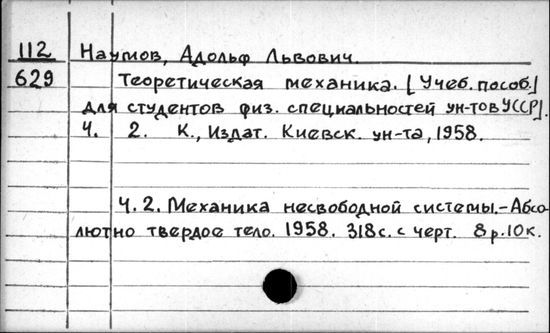 112 Наумов, Адольф Львович.
629 Теоретическая механика. [Учеб. пособ.]
для студентов физ. специальностей ун-тов УССР].
Ч. 2. К., Издат. Киевск. ун-та, 1958.
Ч. 2. Механика несвободной системы.-Абсо-
лютно твердое тело. 1958. 318с. с черт. 8р.10к.